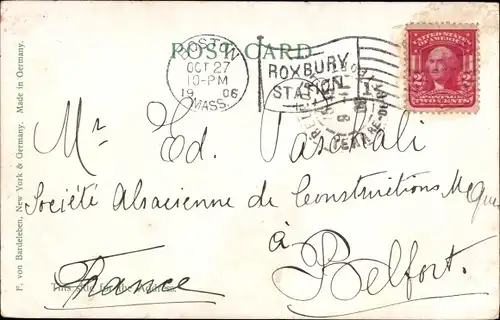 POST CARD
BOSTON
OCT 27
10-PM
1906
MASS.
ROXBURY
STATION
UNITED STATES
OF AMERICA
POSTAGE
2 TWO CENTS 2
Mr Ed. Paschali
Société Alsacienne de Constructions Mques
à
Belfort.
France
This side for the Address.
F. von Bardeleben, New York & Germany. Made in Germany.